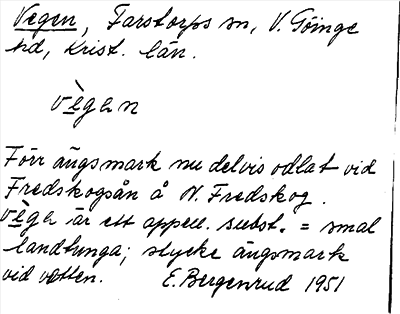 Vegen, Farstorps sn, V. Göinge
hd, Krist. län.
vègən
Förr ängsmark nu delvis odlat vid
Fredskogsån å N. Fredskog.
vègə är ett appell. subst. = smal
landtunga; stycke ängsmark
vid vatten. E. Bergenrud 1951